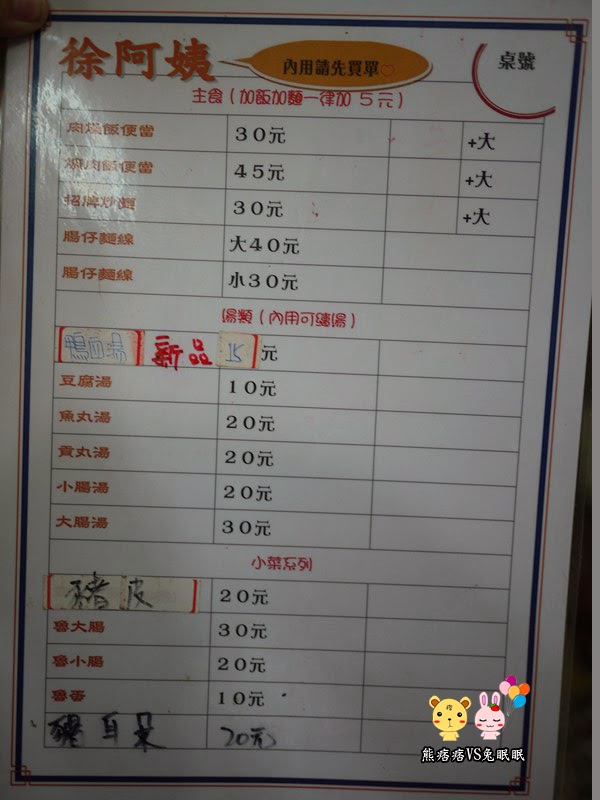 徐阿姨
內用請先買單♡
桌號
主食（加飯加麵一律加 5 元）
肉燥飯便當 30元 +大
焢肉飯便當 45元 +大
招牌炒麵 30元 +大
腸仔麵線 大40元
腸仔麵線 小30元
湯類（內用可續湯）
鴨血湯 新品 15 元
豆腐湯 10元
魚丸湯 20元
貢丸湯 20元
小腸湯 20元
大腸湯 30元
小菜系列
豬皮 20元
魯大腸 30元
魯小腸 20元
魯蛋 10元
豬耳朵 20元
熊痞痞VS兔眠眠